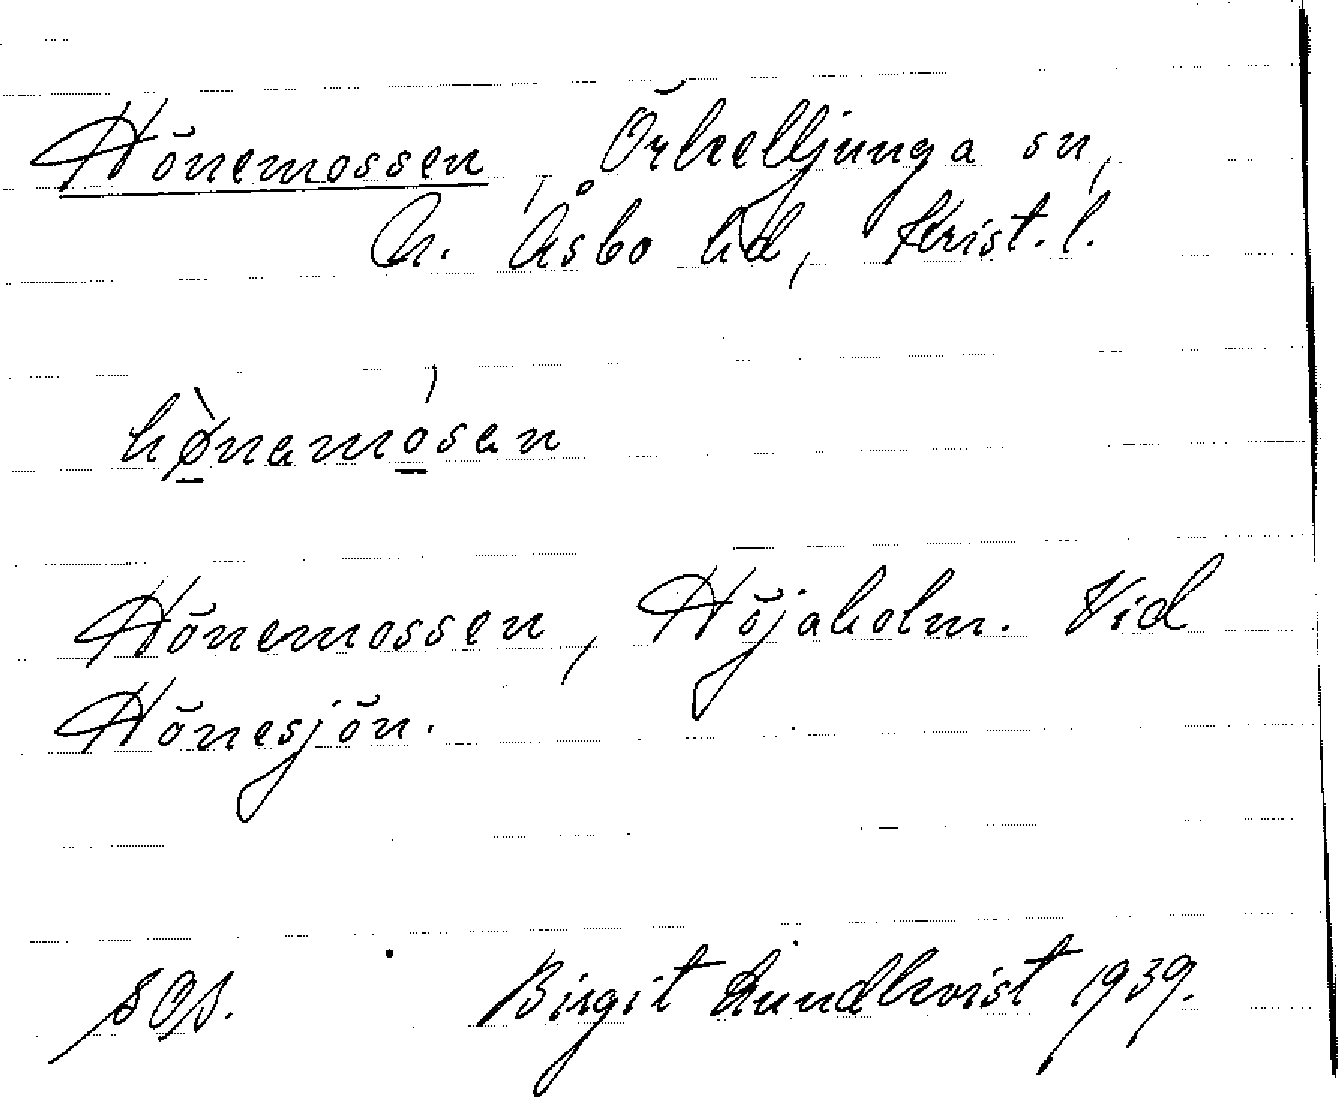 Hönemossen, Örkelljunga sn,
N. Åsbo hd, Krist. l.
hø̀namósan
Hönemossen, Höjaholm. Vid
Hönesjön.
sOs. Birgit Lundkvist 1939.